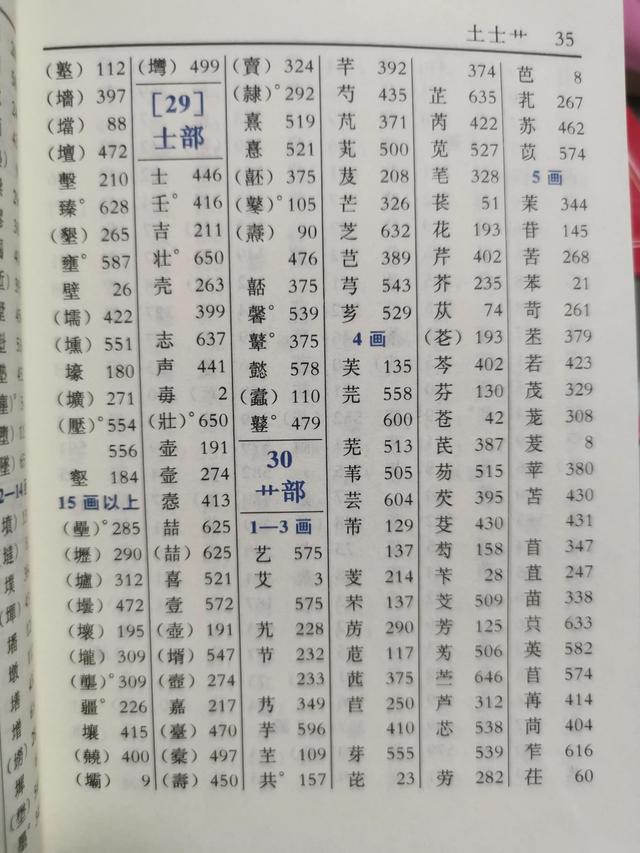 土士艹 35
(墪) 112
(墻) 397
(壋) 88
(壇) 472
墼 210
臻° 628
(墾) 265
壅° 587
壁 26
(壖) 422
(壎) 551
壕 180
(壙) 271
(壓)° 554
556
壑 184
15 画以上
(壘)° 285
(壢) 290
(壚) 312
(壜) 472
(壞) 195
(壠) 309
(壟)° 309
疆° 226
壤 415
400
(壩) 9
(壪) 499
[29]
士部
士 446
壬° 416
吉 211
壮° 650
壳 263
399
志 637
声 441
毐 2
(壯)° 650
壶 191
壸 274
悫 413
喆 625
(喆) 625
喜 521
壹 572
(壺) 191
(壻) 547
(壼) 274
嘉 217
(臺) 470
(橐) 497
(壽) 450
(賣) 324
(隸)° 292
熹 519
憙 521
(嚭) 375
(鼕)° 105
(燾) 90
476
嚭 375
馨° 539
鼙 375
懿 578
(蠹) 110
鼟 479
30
艹部
1—3 画
艺 575
艾 3
575
艽 228
节 232
233
艿 349
芋 596
芏 109
共° 157
芊 392
芍 435
芃 371
芄 500
芨 208
芒 326
芝 632
芑 389
芎 543
芗 529
4 画
芙 135
芫 558
600
芜 513
苇 505
芸 604
芾 129
137
芰 214
芣 137
苈 290
苊 117
苉 375
苣 250
410
芽 555
芘 23
374
芷 635
芮 422
苋 527
芼 328
苌 51
花 193
芹 402
芥 235
苁 74
(芲) 193
芩 402
芬 130
苍 42
芪 387
芴 515
芡 395
芟 430
芶 158
苄 28
芠 509
芳 125
506
苎 646
芦 312
芯 538
539
劳 282
芭 8
芤 267
苏 462
苡 574
5 画
茉 344
苷 145
苦 268
苯 21
苛 261
苤 379
若 423
茂 329
茏 308
茇 8
苹 380
苫 430
431
苜 347
苴 247
苗 338
633
英 582
苢 574
苒 414
苘 404
苲 616
茌 60